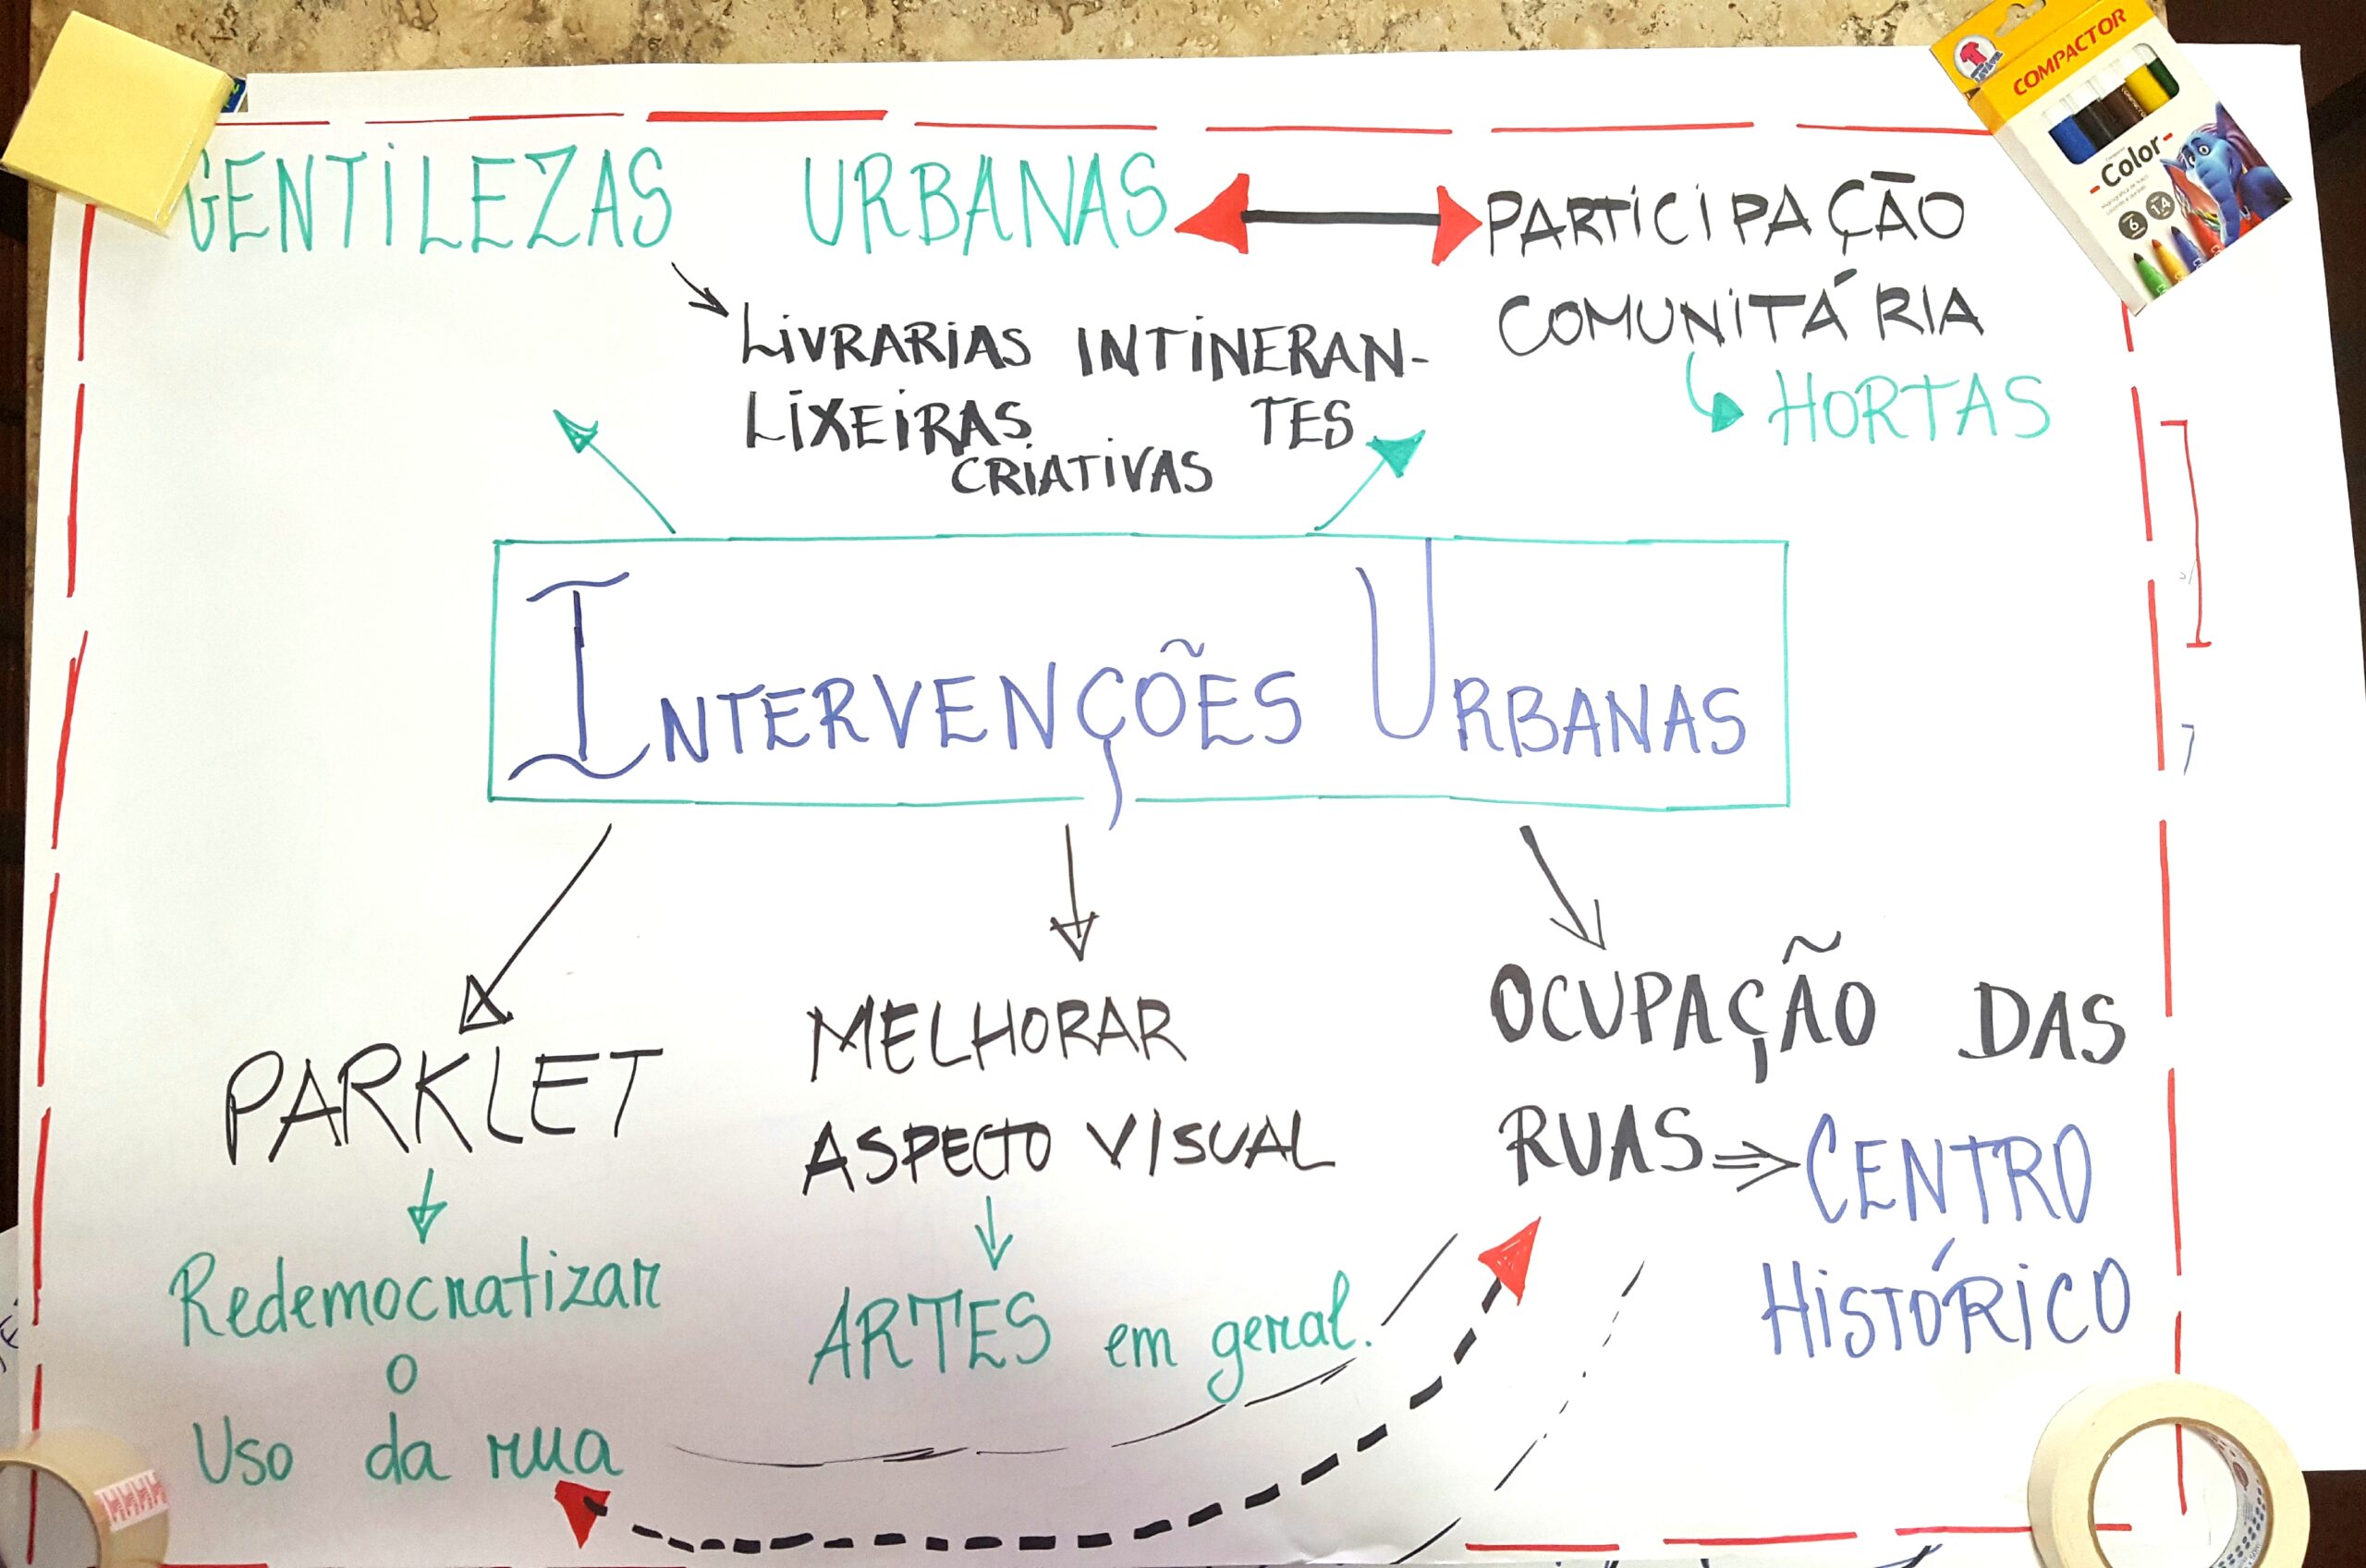 GENTILEZAS URBANAS
PARTICIPAÇÃO
COMUNITÁRIA
HORTAS
LIVRARIAS INTINERAN-
TES
LIXEIRAS
CRIATIVAS
INTERVENÇÕES URBANAS
PARKLET
Redemocratizar
o
Uso da rua
MELHORAR
ASPECTO VISUAL
ARTES em geral.
OCUPAÇÃO DAS
RUAS ⇒ CENTRO
HISTÓRICO
COMPACTOR
Color
6